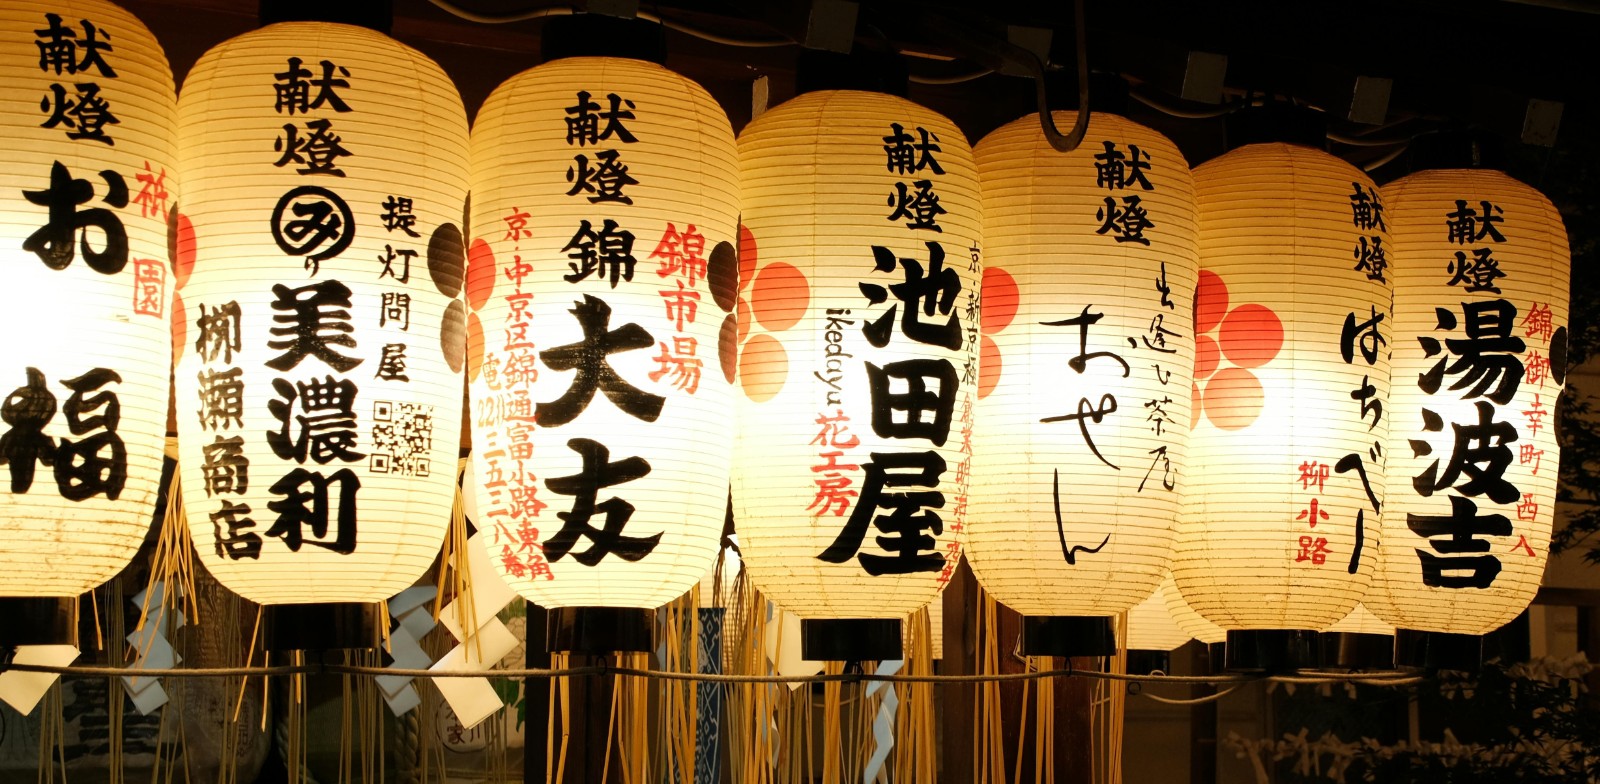 献燈
お福
祇園
献燈
み
美濃利
提灯問屋
柳瀬商店
献燈
錦
大友
錦市場
京・中京区錦通富小路東角
電221三五三八番
献燈
池田屋
ikedaya
花工房
京・新京極
献燈
出逢ひ茶屋
おせん
献燈
はちべー
柳小路
献燈
湯波吉
錦御幸町西入